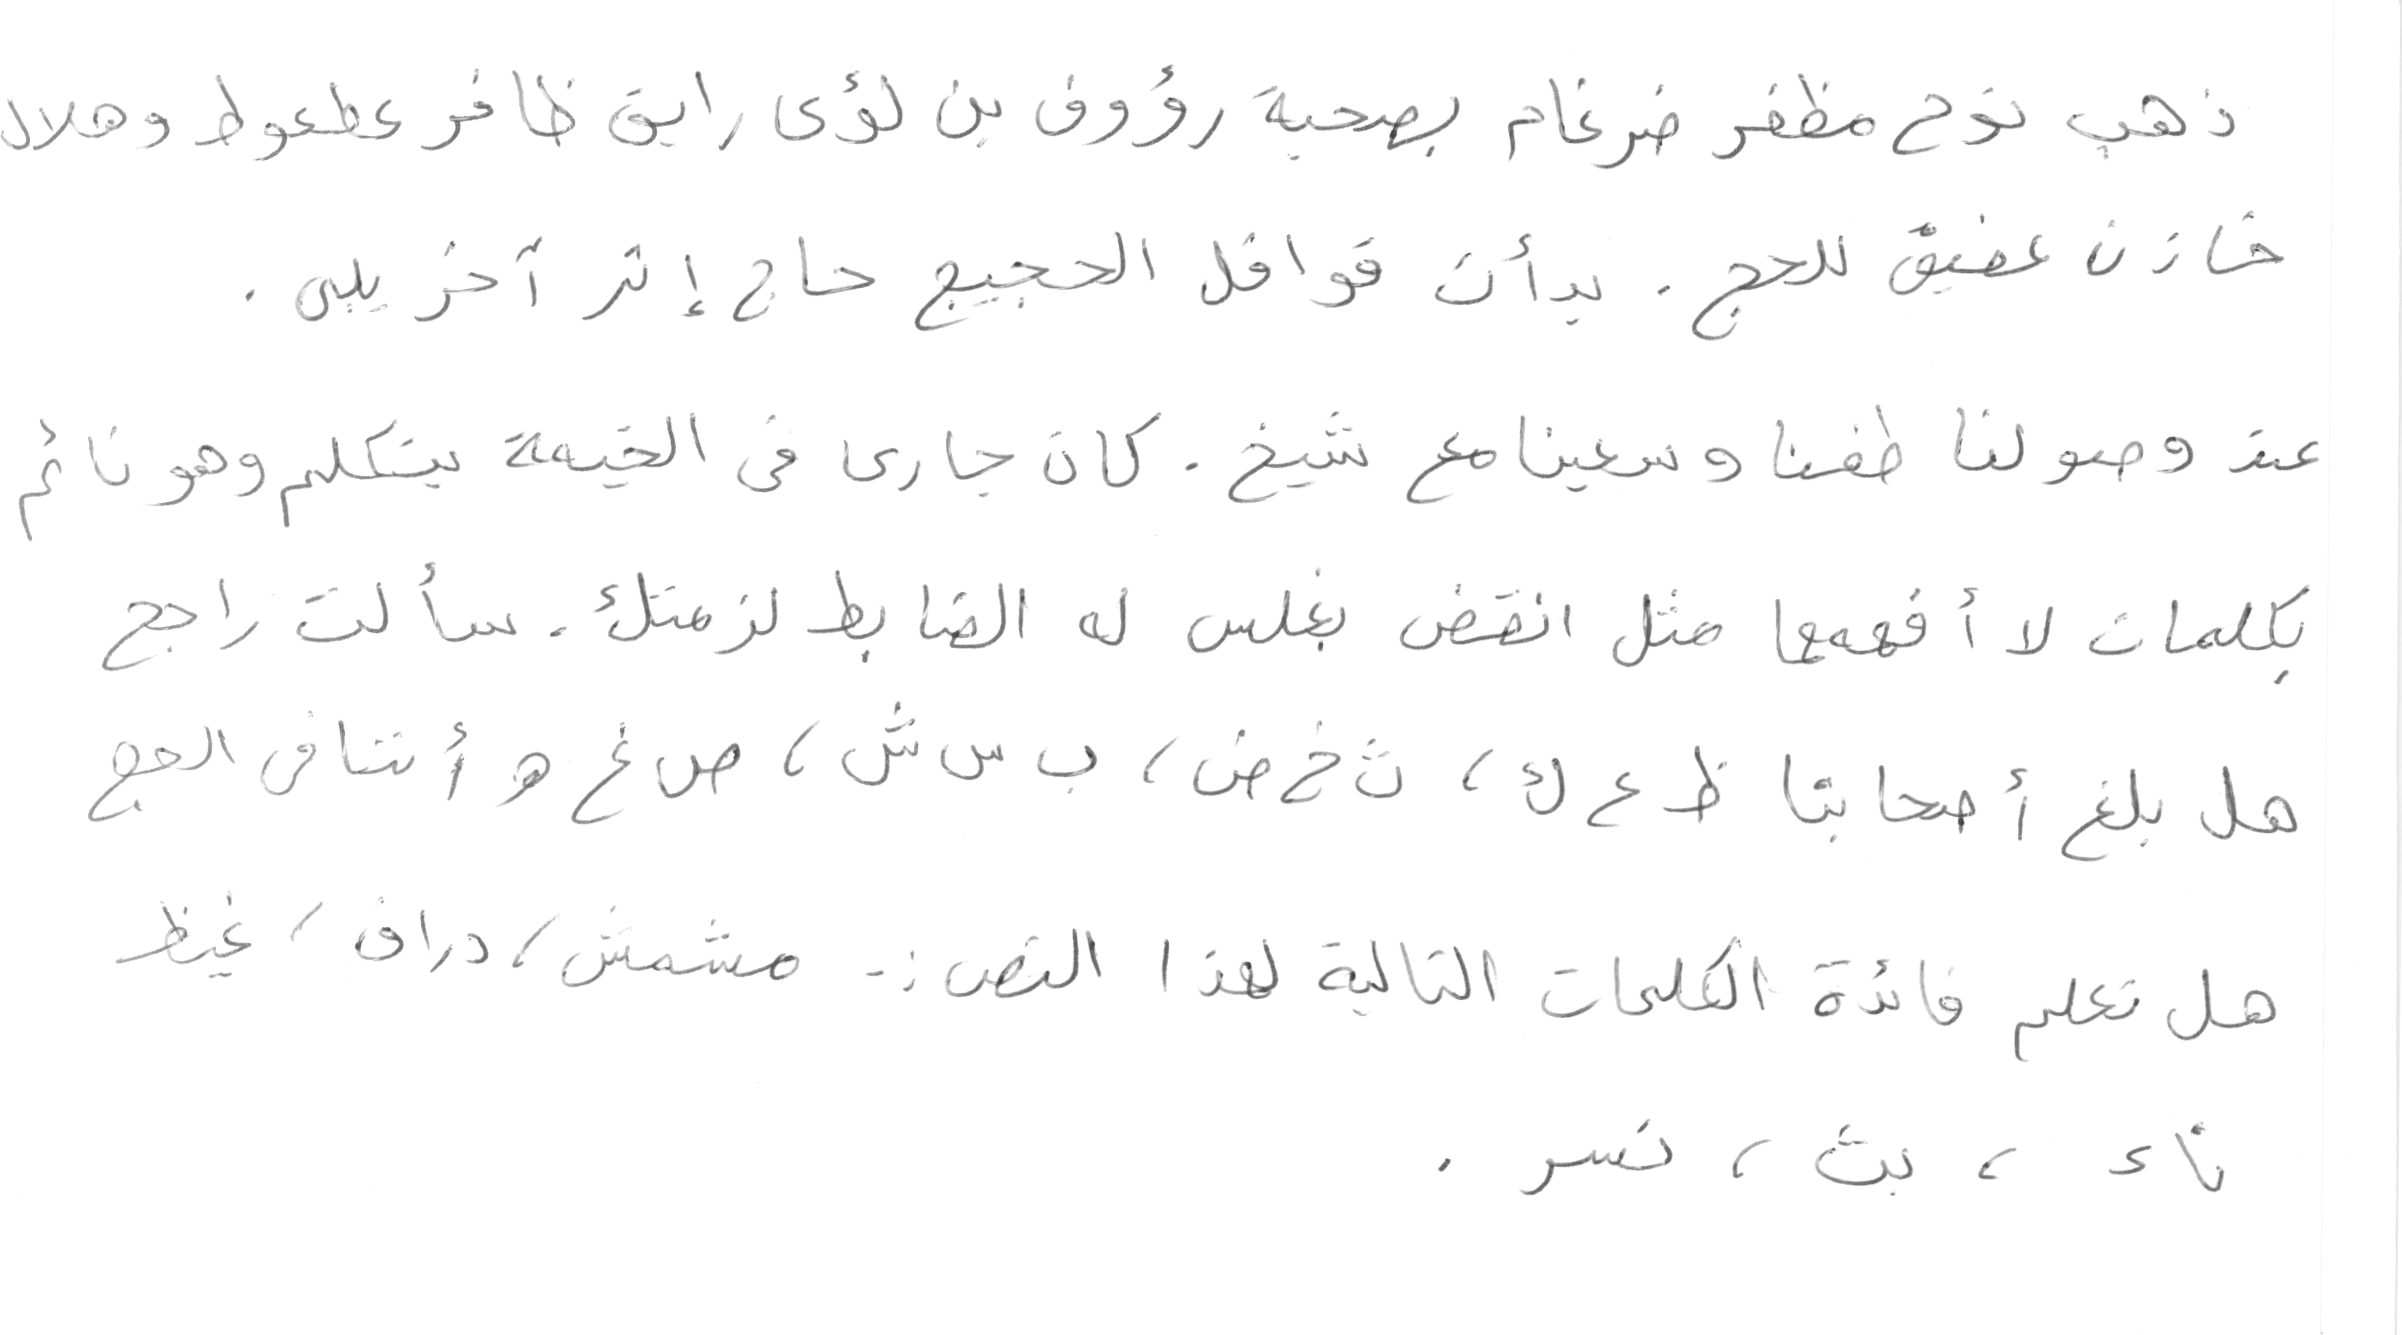 ذهب نوح مظفر ضرغام بصحبة رؤوف بن لؤى رايق ظافر عطعوط وهلال
خازن عضيق للحج . بدأت قوافل الحجيج حاج إثر آخر يلبى .
عند وصولنا طفنا وسعينا مع شيخ . كان جارى فى الخيمة يتكلم وهو نائم
بكلمات لا أفهمها مثل انقض بغلس له الضابط لزمتك . سألت راجح
هل بلغ أصحابنا ظ ع ك ، ث خ ض ، ب س ش ، ص غ ه أننا فى الحج
هل تعلم فائدة الكلمات التالية لهذا النص :- مشمش ، دراق ، غيظ
ناء ، بث ، نسر .